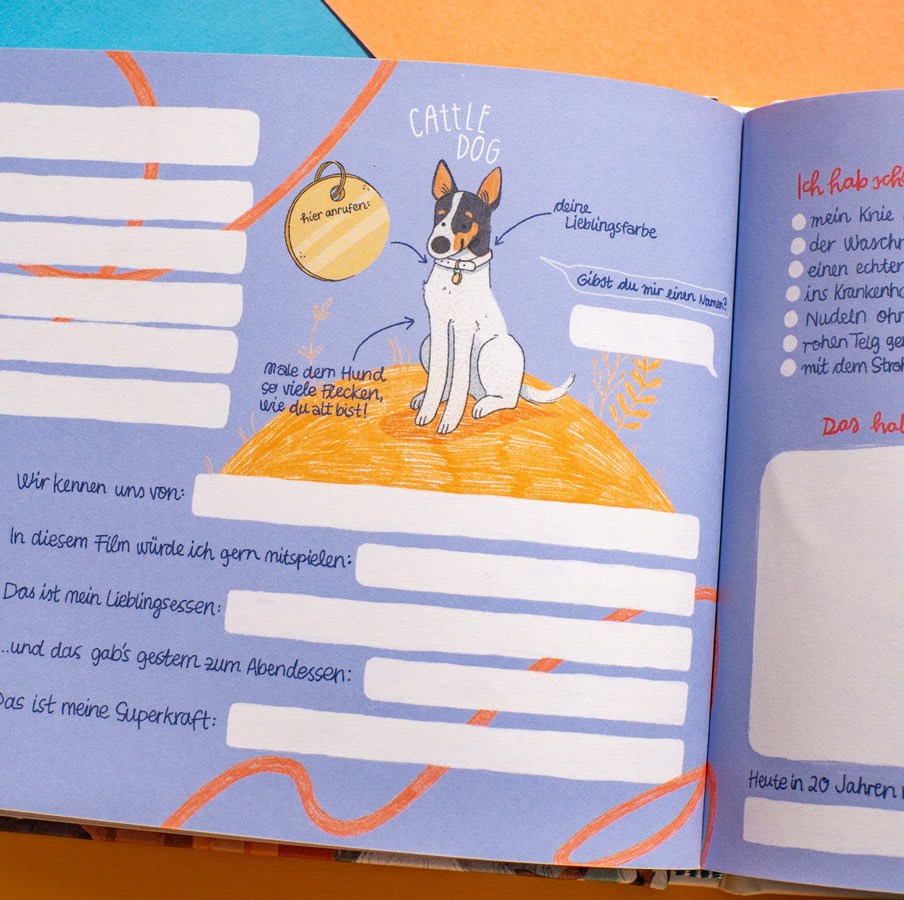 CATTLE
DOG
hier anrufen:
deine
Lieblingsfarbe
Gibst du mir einen Namen?
Male dem Hund
so viele Flecken,
wie du alt bist!
Wir kennen uns von:
In diesem Film würde ich gern mitspielen:
Das ist mein Lieblingsessen:
...und das gab's gestern zum Abendessen:
Das ist meine Superkraft:
Ich hab sch
mein Knie
der Waschm
einen echten
ins Krankenha
Nudeln ohn
rohen Teig ge
mit dem Stroh
Das hab
Heute in 20 Jahren